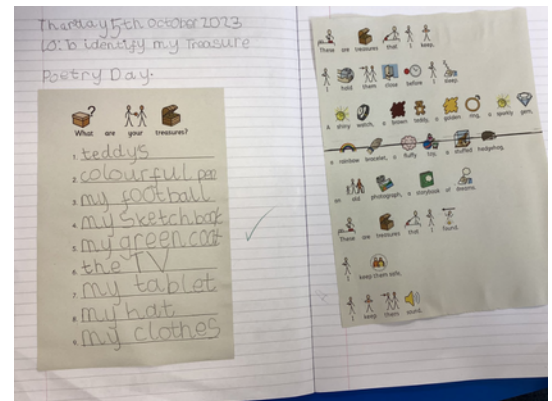 Thursday 5th October 2023
LO: To identify my Treasure
Poetry Day.
What are your treasures?
1. teddys
2. colourful pen
3. my football
4. my sketchbook
5. my green coat
6. the TV
7. my tablet
8. my hat
9. my clothes
These are treasures that I keep,
I hold them close before I sleep.
A shiny watch, a brown teddy, a golden ring, a sparkly gem,
a rainbow bracelet, a fluffy toy, a stuffed hedgehog,
an old photograph, a storybook of dreams.
These are treasures that I found.
I keep them safe,
I keep them sound.